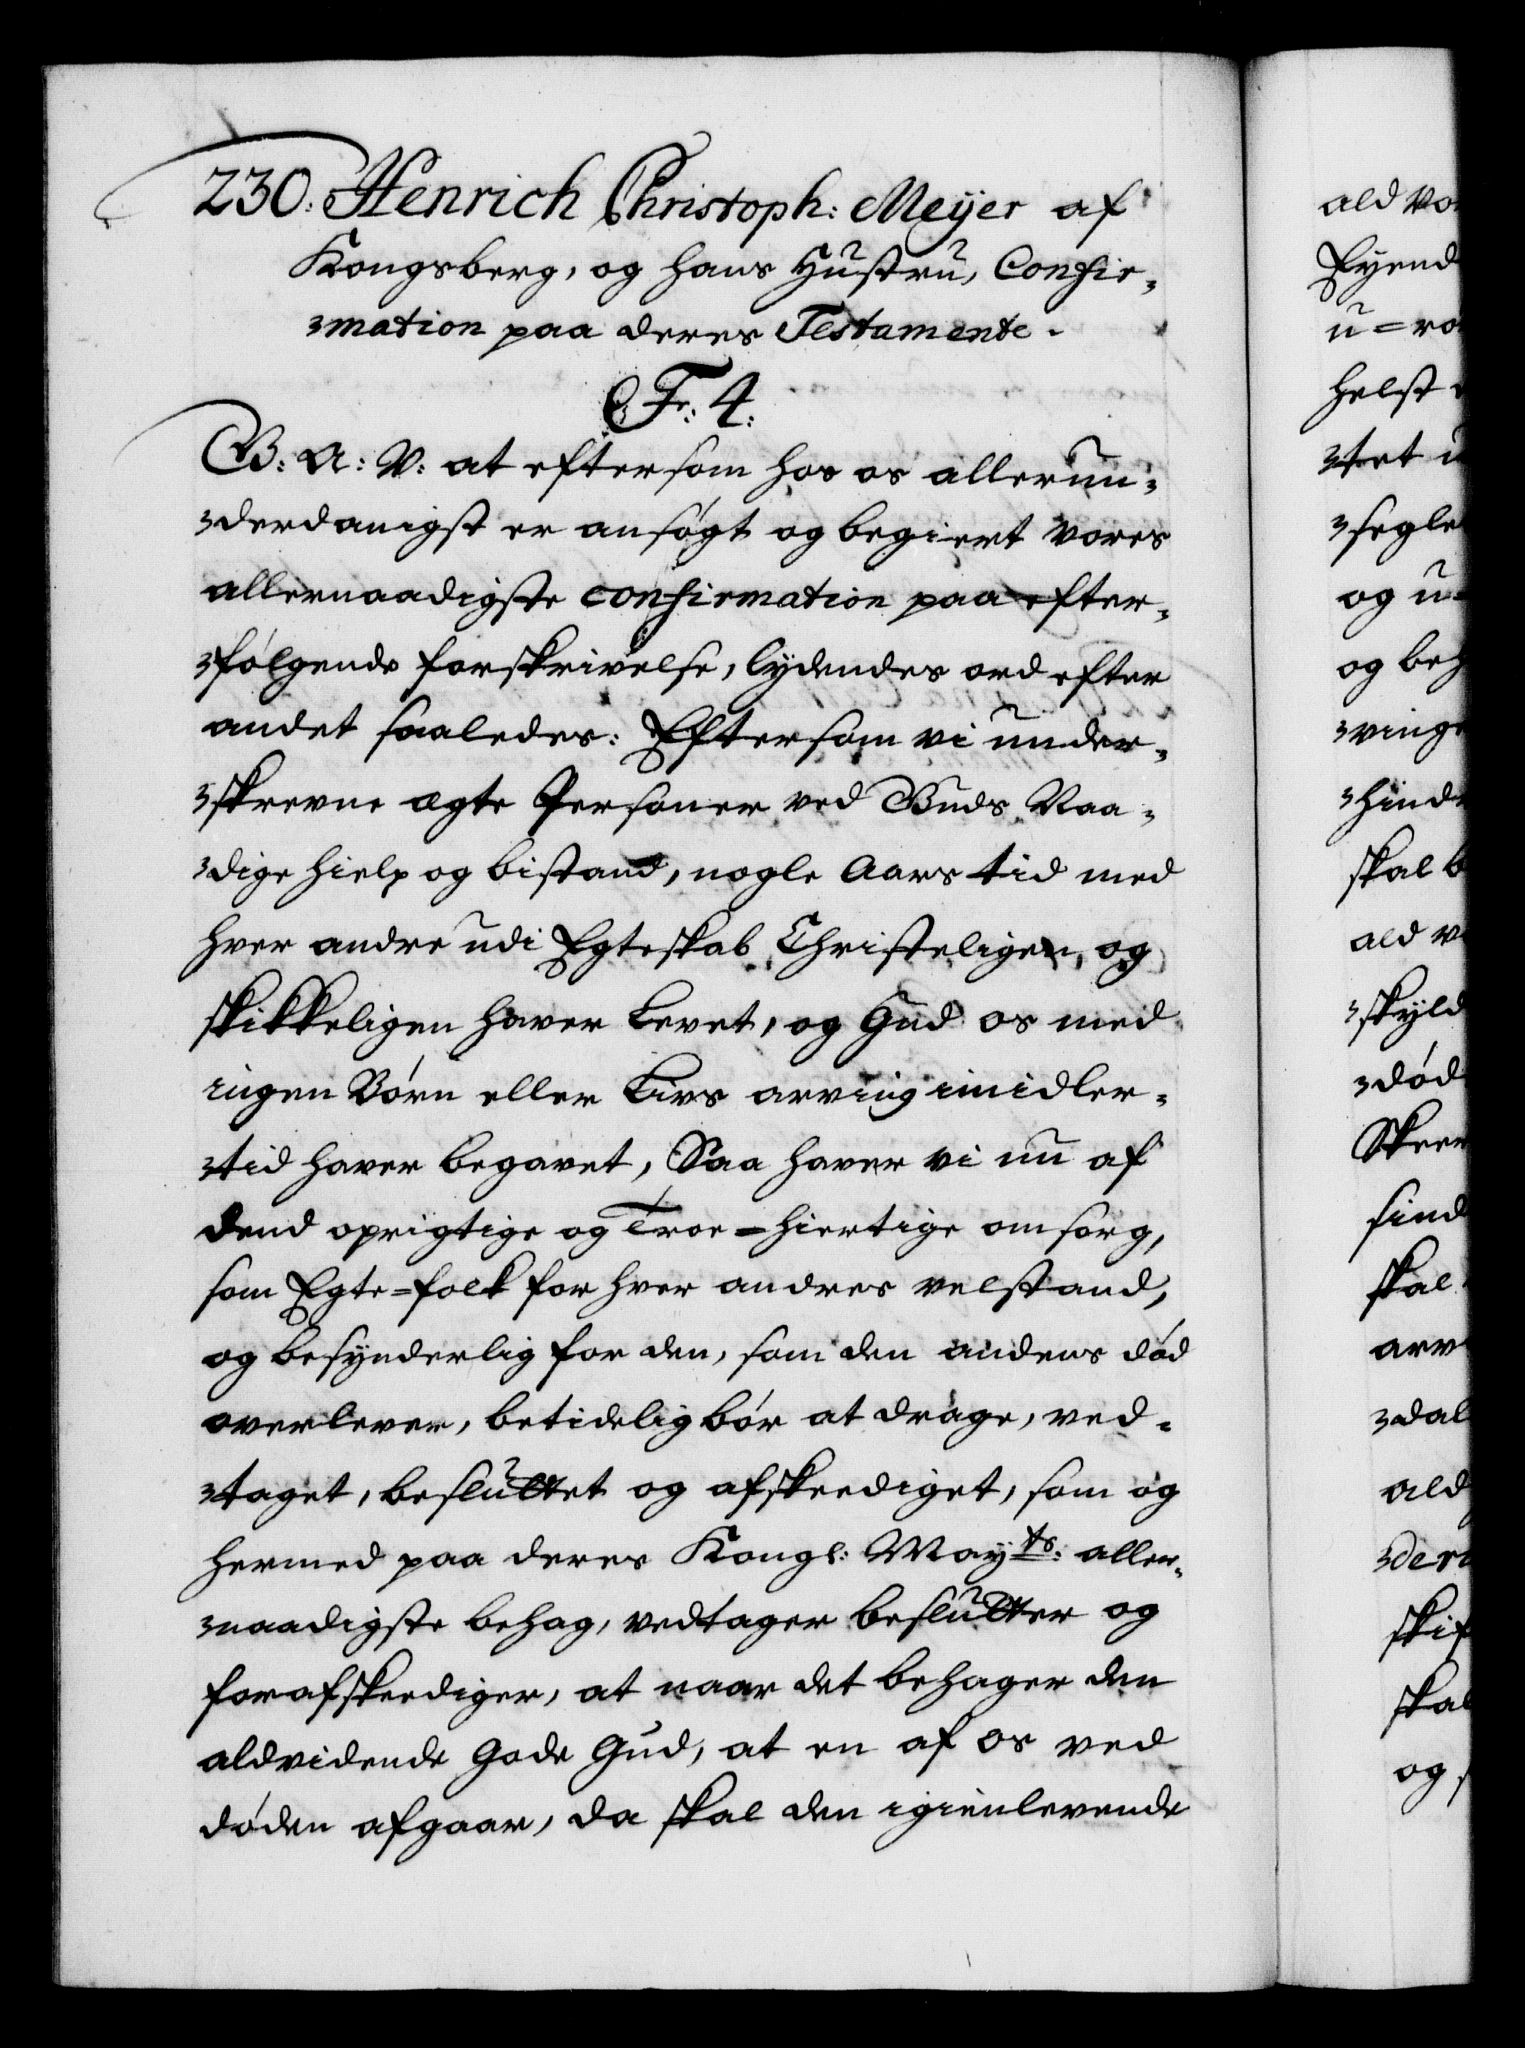 230. Henrich Christoph: Meyer af
Kongsberg, og hans Hustru, Confir-
-mation paa deres Testamente.
F: 4.
G: A: V: at eftersom hos os allerun-
-derdanigst er ansøgt og begiert vores
allernaadigste confirmation paa efter-
-følgende forskrivelse, lydendes ord efter
andet saaledes: Eftersom vi under-
-skrevne ægte Personer ved Guds Naa-
-dige hielp og bistand, nogle Aars tid med
hver andre udi Egteskab Christeligen, og
skikkeligen haver Levet, og Gud os med
ingen Børn eller Livs arving imidler-
-tid haver begavet, Saa haver vi nu af
dend oprigtige og Troe-hiertige omsorg,
som Egte-folk for hver andres velstand,
og besynderlig for den, som den andens død
overlever, betidelig bør at drage, ved-
-taget, besluttet og afskeediget, som og
hermed paa deres Kongl: Mayts: aller-
-naadigste behag, vedtager beslutter og
forafskeediger, at naar det behager den
aldvidende Gode Gud, at en af os ved
døden afgaar, da skal den igienlevende
ald vo
Eyend
u-ro
helst
-tet u
-segle
og u-
og beh
-vinge
-hind
skal b
ald v
-skyld
-død
Skeer
sind
skal
arv
-dal
ald
-der
skif
skal
og s